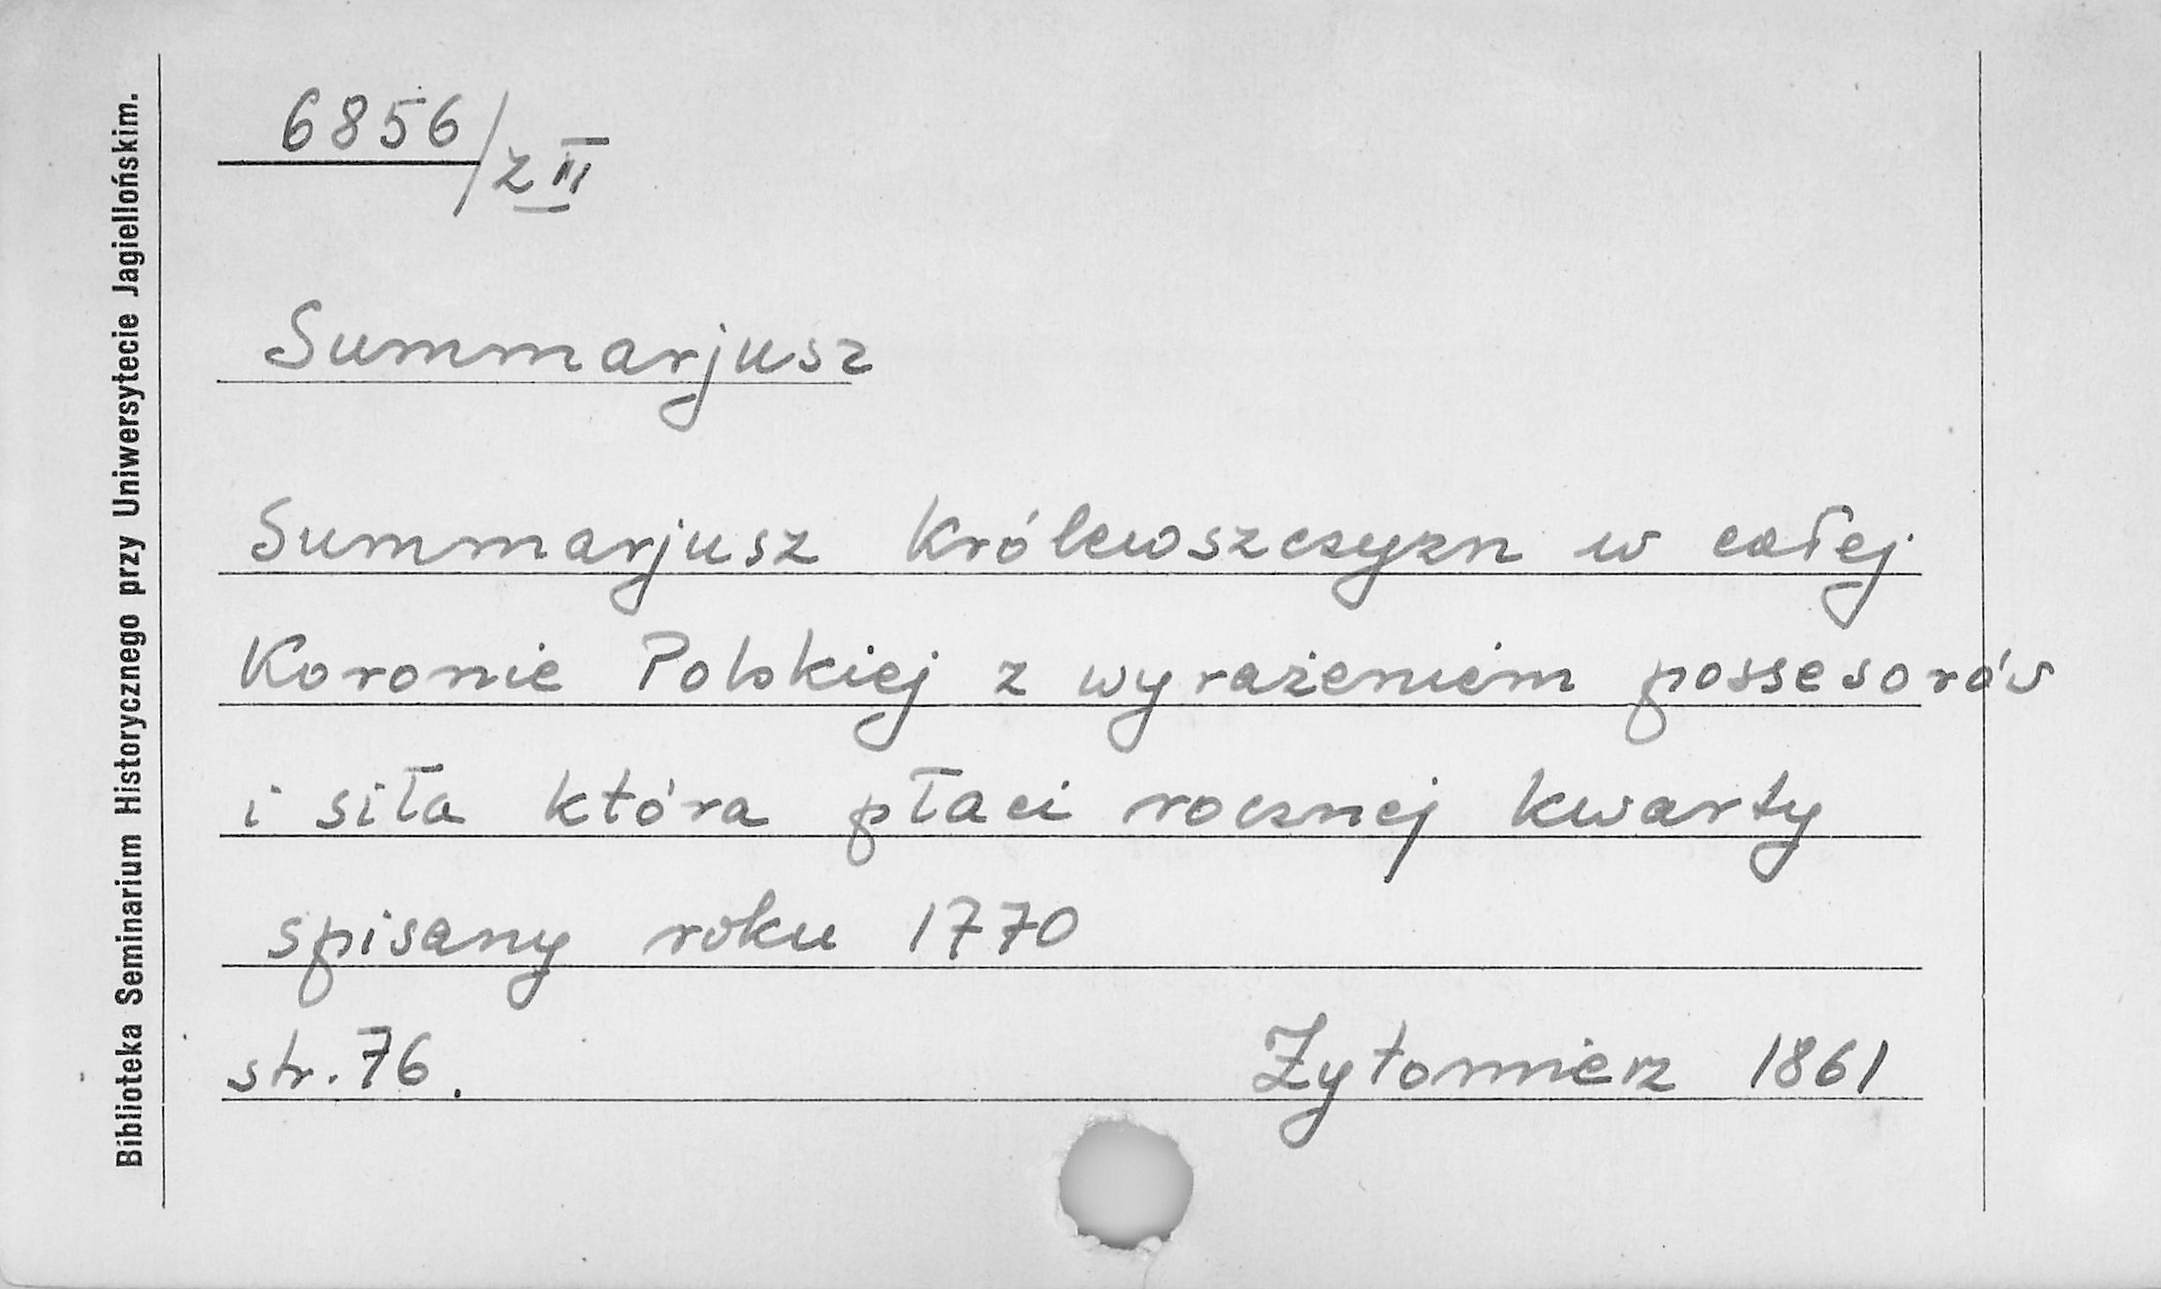 6856/z III
Summarjusz
Summarjusz Królewszczyzn w całej
Koronie Polskiej z wyrażeniem possesorów
i siła która płaci rocznej kwarty
spisany roku 1770
str. 76.
Żytomierz 1861
Biblioteka Seminarium Historycznego przy Uniwersytecie Jagiellońskim.